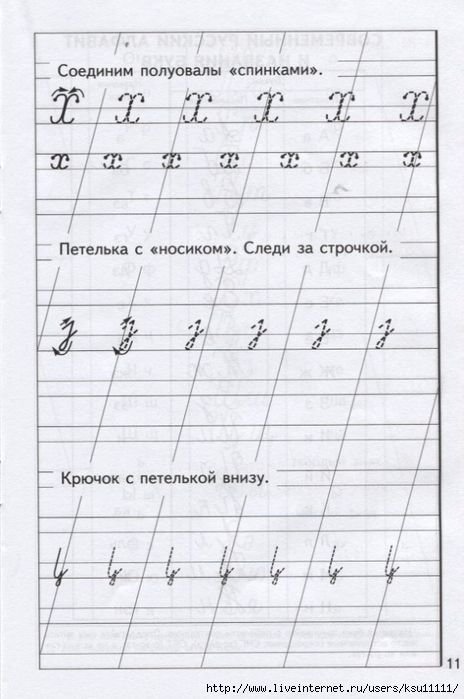 Соединим полуовалы «спинками».
Х Х Х Х Х Х
х х х х х х х
Петелька с «носиком». Следи за строчкой.
Крючок с петелькой внизу.
11
http://www.liveinternet.ru/users/ksu11111/